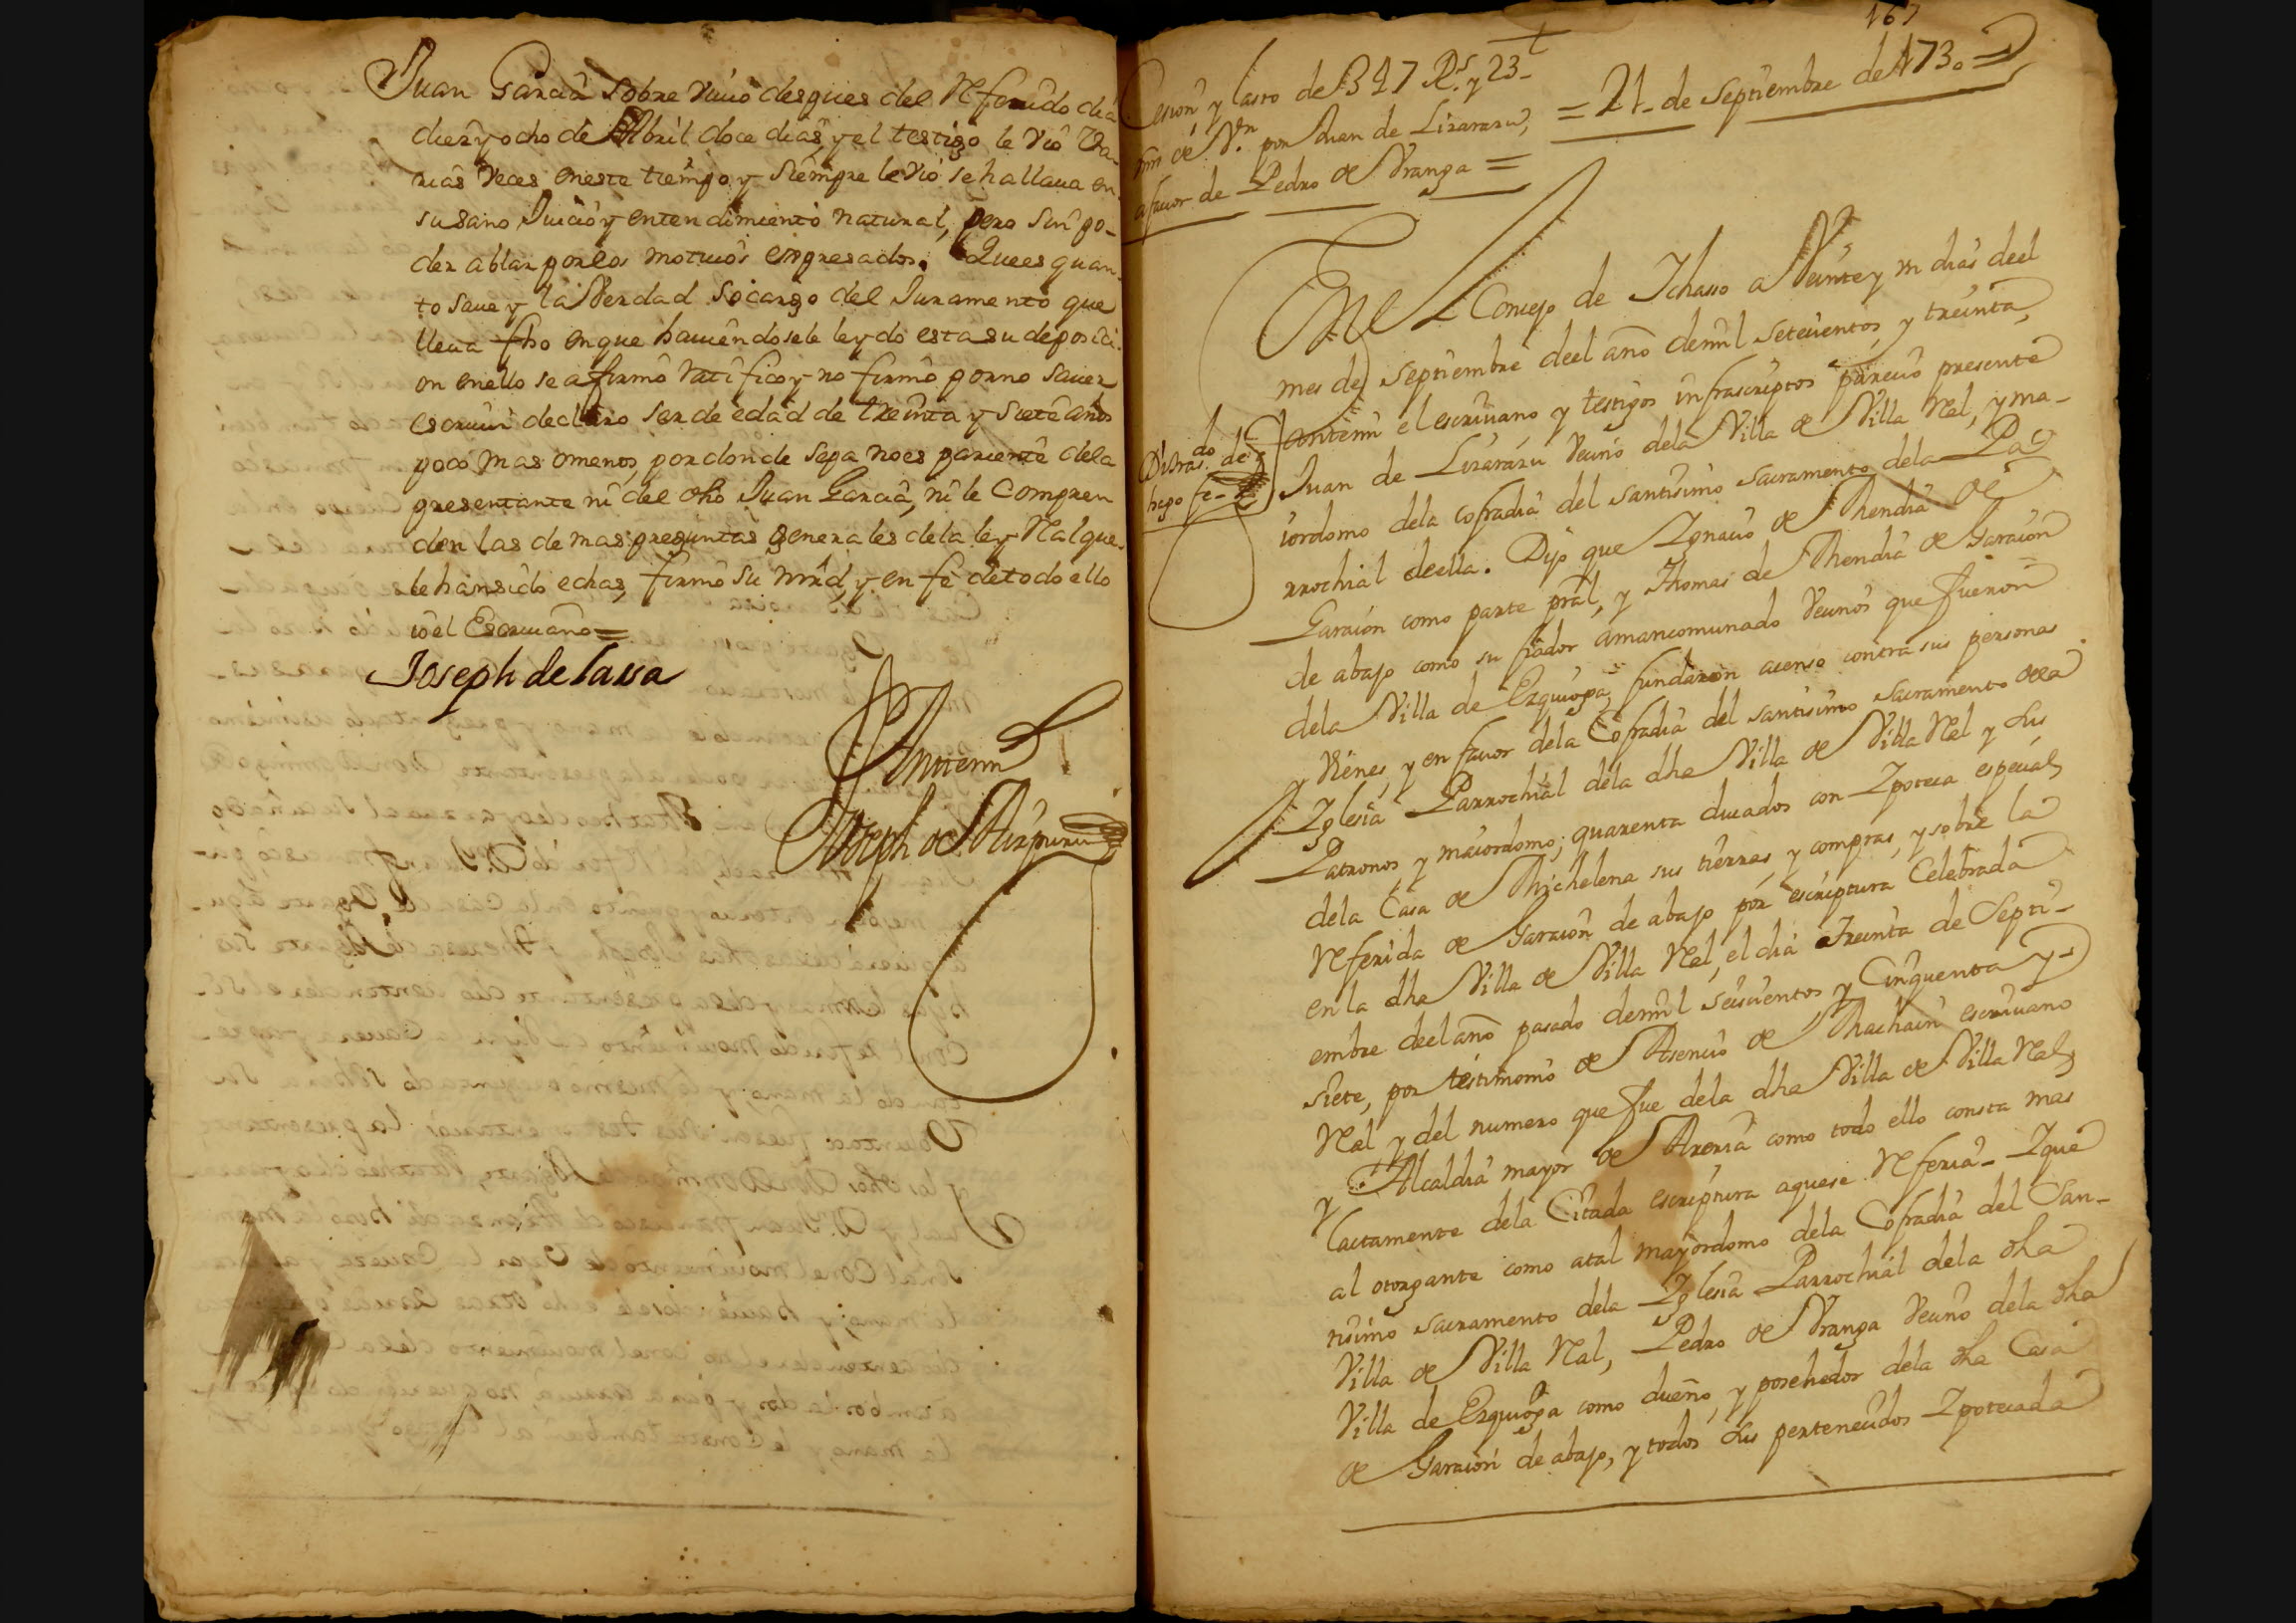 Juan Garcia sobre viuio despues del Referido dia
diez y ocho de Abril doce dias, y el testigo le vio Va-
rias veces en este tiempo y siempre le vio se hallaua en
su sano Juicio y entendimiento natural, pero sin po-
der ablar por los motiuos expresados. Que es quan-
to saue y la Verdad so cargo del Juramento que
lleua fho en que hauiendosele leydo esta su deposici-
on en ello se afirmo ratifico y no firmo por no sauer
escriuir declaro ser de edad de treinta y siete años
poco mas o menos, por donde sepa no es pariente dela
presentante ni del dho Juan Garcia, ni le Compren
den las demas preguntas generales dela ley Real que
le han sido echas, firmo su mrd, y en fe de todo ello
io el Escriuano =
Joseph de Lassa
Antemi
Joseph de Aizpuru
167
Cesion y lasto de 347 Rs. y 23-
mrs de Vn. por Juan de Lizararu,
a fauor de Pedro de Vranga =
= 21- de Septiembre de 1730 =
En el Concejo de Ichasso a Veinte y un dias deel
mes de Septiembre deel año demil setecientos, y treinta,
antemi el escriuano y testigos infrascriptos parecio presente
Juan de Lizararu Vecino dela Villa de Villa Real, y ma-
iordomo dela Cofradia del santisimo sacramento dela Pa-
rrochial deella. Dijo que Ignacio de Mendia de
Garacion como parte pral, y Thomas de Mendia de Garaion
de abajo como su fiador amancomunado Vecinos que fueron
dela Villa de Ezquioga, fundaron acenso contra sus personas
y Vienes, y en fauor dela Cofradia del santisimo sacramento dela
Iglesia Parrochial dela dha Villa de Villa Real y sus
Patronos, y maiordomo; quarenta ducados con Ipoteca especial,
dela Casa de Michelena sus tierras, y compras, y sobre la
Referida de Garacion de abajo por escriptura Celebrada
en la dha Villa de Villa Real, el dia Treinta de Septi-
embre deel año pasado demil seiscientos y Cinquenta y
siete, por testimonio de Asencio de Machain escriuano
Real y del numero que fue dela dha Villa de Villa Real,
y Alcaldia mayor de Areria como todo ello consta mas
lactamente dela Citada escriptura aquese Referia- Ique
al otorgante como atal mayordomo dela Cofradia del San-
tisimo sacramento dela Iglesia Parrochial dela dha
Villa de Villa Real, Pedro de Vranga Vecino dela dha
Villa de Ezquioga como dueño, y posehedor dela dha Casa
de Garacion de abajo, y todos sus pertenecidos Ipotecada